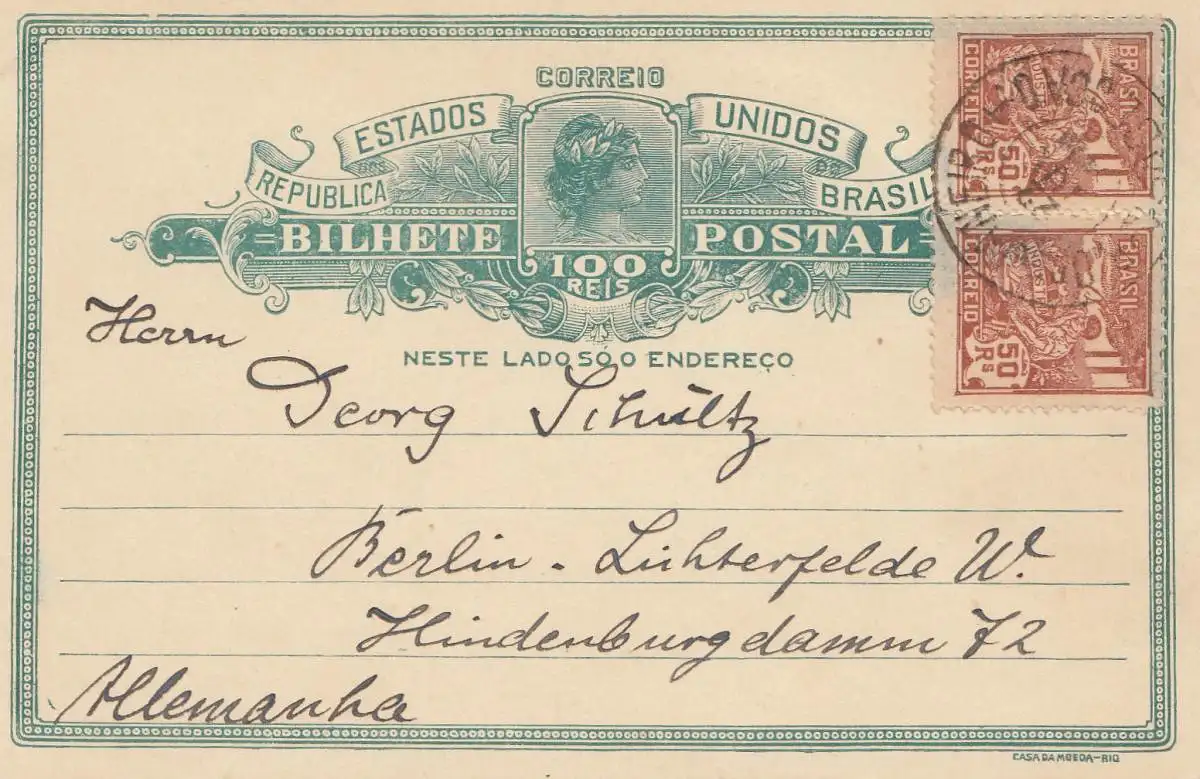 CORREIO
ESTADOS UNIDOS
REPUBLICA DOS DO BRASIL
BILHETE POSTAL
100
REIS
NESTE LADO SÓ O ENDEREÇO
BRASIL
CORREIO
INDUSTRIA
50 Rs
BRASIL
CORREIO
INDUSTRIA
50 Rs
Herrn
Georg Schultz
Berlin - Lichterfelde W.
Hindenburgdamm 72
Allemanha
CASA DA MOEDA-RIO